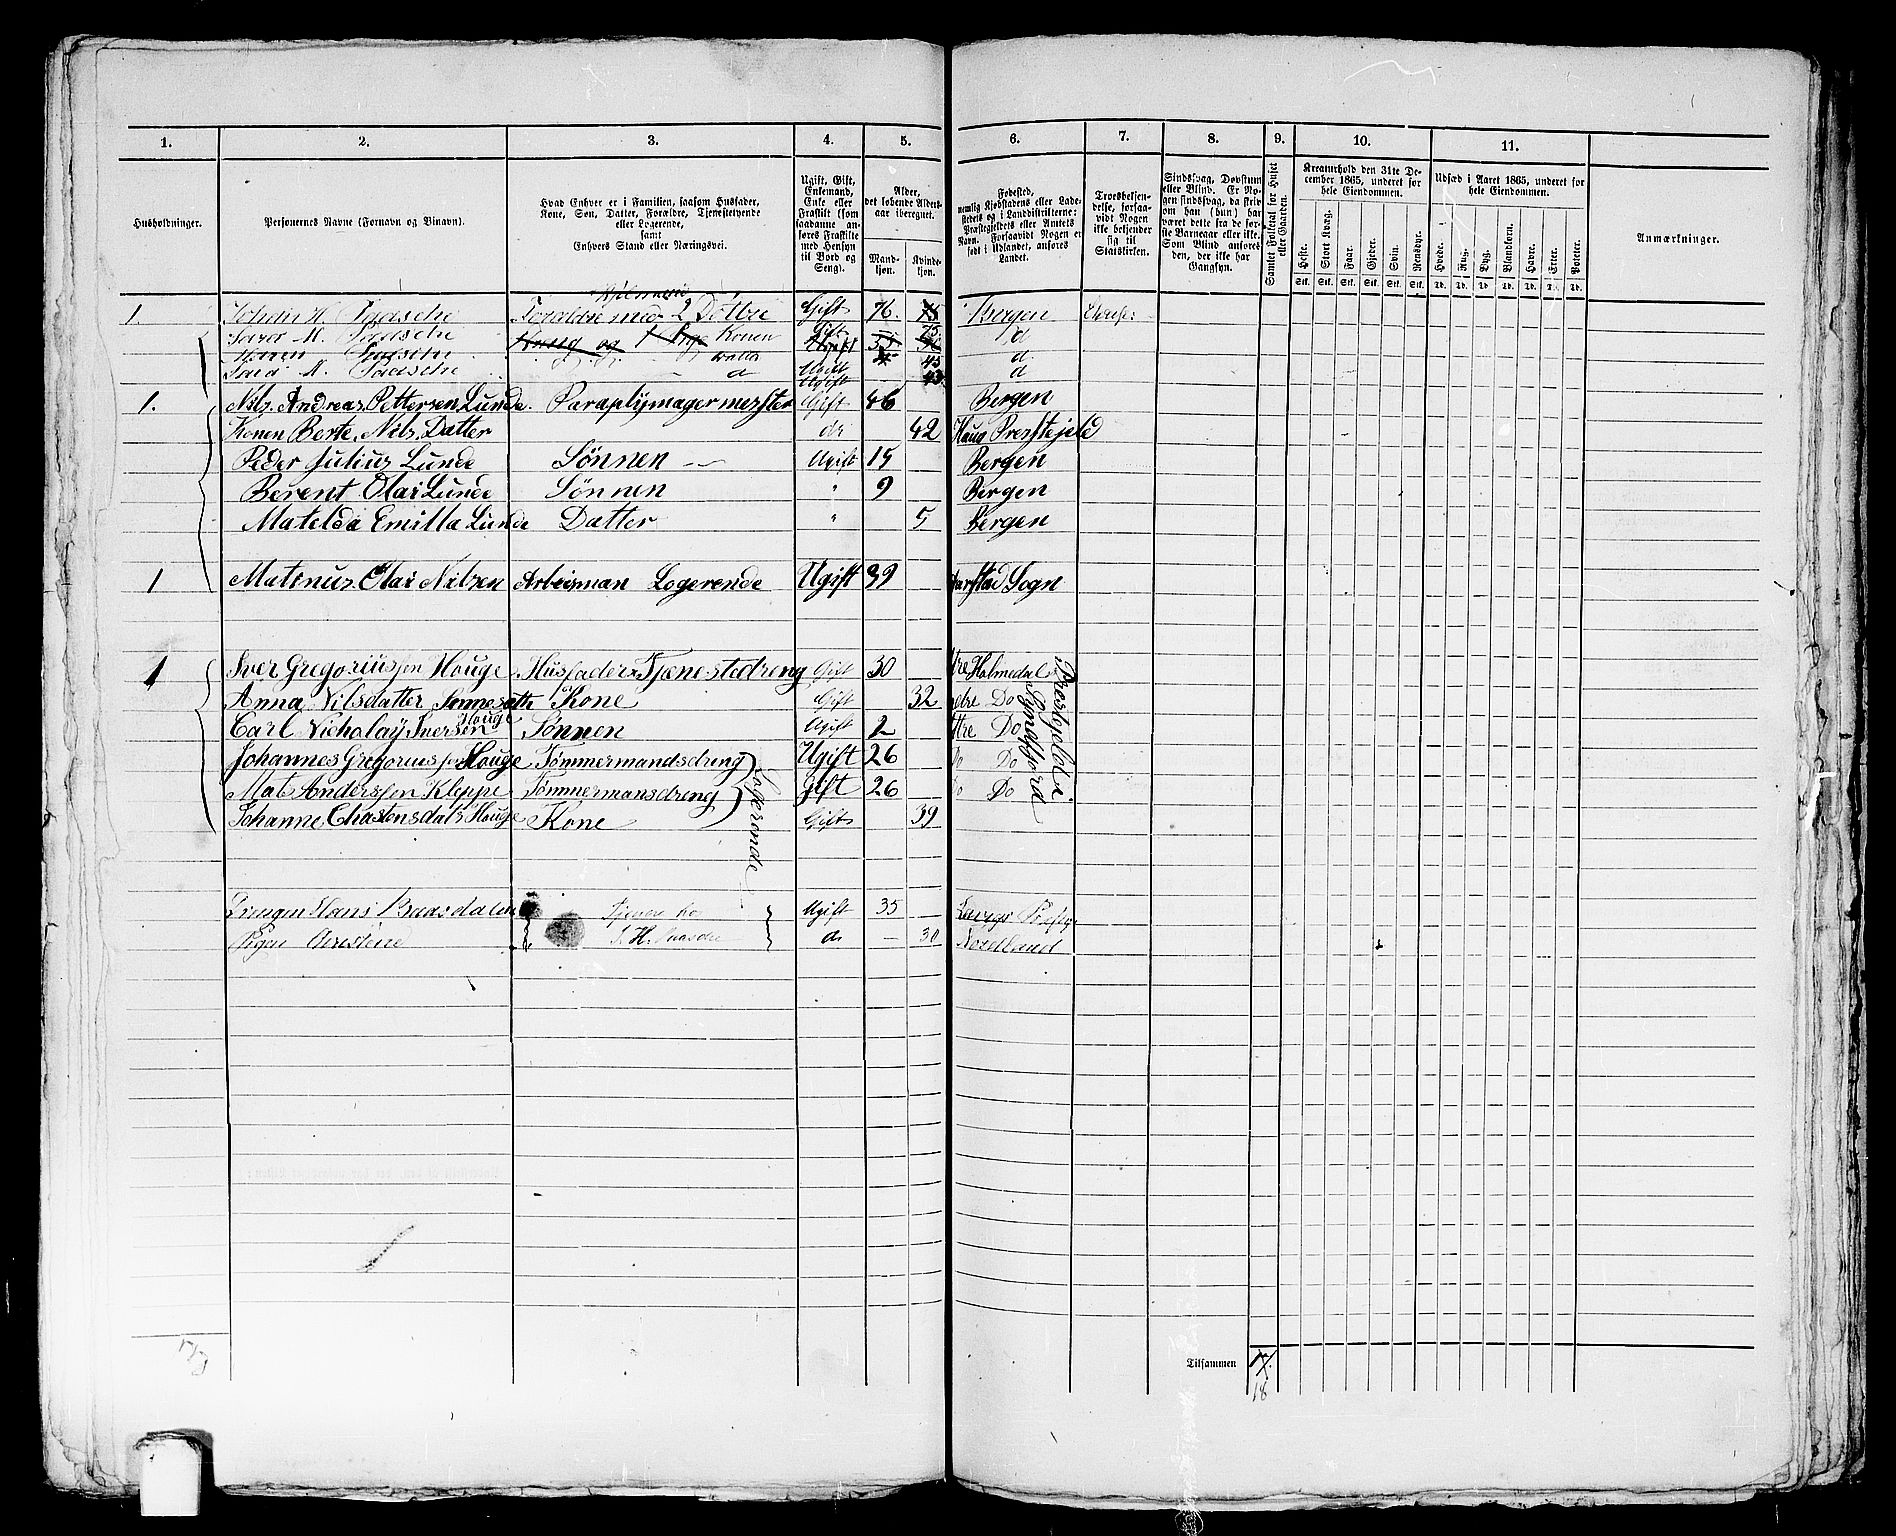 1. 2. 3. 4. 5. 6. 7. 8. 9. 10. 11.
Husholdninger.
Personernes Navne (Fornavn og Binavn).
Hvad Enhver er i Familien, saasom Husfader,
Kone, Søn, Datter, Forældre, Tjenestetyende
eller Logerende,
samt
Enhvers Stand eller Næringsvei.
Ugift, Gift,
Enkemand,
Enke eller
Fraskilt (som
saadanne an-
føres Fraskilte
med Hensyn
til Bord og
Seng).
Alder,
det løbende Alders-
aar iberegnet.
Mand-
kjøn.
Kvinde-
kjøn.
Fødested,
nemlig Kjøbstadens eller Lade-
stedets og i Landdistrikterne:
Præstegjeldets eller Amtets
Navn. Forsaavidt Nogen er
født i Udlandet, anføres
Landet.
Troesbekjen-
delse, forsaa-
vidt Nogen
ikke bekjender
sig til
Statskirken.
Sindssvag, Døvstum
eller Blind. Er No-
gen sindssvag, da skriv
om han (hun) har
været dette fra de før-
ste Barneaar eller ikke.
Som Blind anføres
den, der ikke har
Gangsyn.
Samlet Folketal for Huset
eller Gaarden.
Kreaturhold den 31te De-
cember 1865, underet for
hele Eiendommen.
Heste. Stort Kvæg. Faar. Gjeder. Svin. Rensdyr.
Stk. Stk. Stk. Stk. Stk. Stk.
Udsæd i Aaret 1865, underet for
hele Eiendommen.
Hvede. Rug. Byg. Blandkorn. Havre. Erter. Poteter.
Td. Td. Td. Td. Td. Td. Td.
Anmærkninger.
1. Johan H. Paasche Forældre med 2 Døttre Gift 76. Bergen
Sara M. Paasche Konen Gift 75. d
Paasche 45 d
Sara M. Paasche d Ugift 43 d
1. Nils. Andreas. Pettersen Lunde. Paraplymager mester Gift 46 Bergen
Konen Berte. Nils. Datter do 42 Haus Prestejeld
Peder Julius Lunde Sönnen Ugift 15 Bergen
Berent Olai Lunde Sönnen " 9 Bergen
Matelda Emilla Lunde Datter " 5 Bergen
1 Matinus Olai Nilsen Arbeisman Logerende Ugift 39 Sogn
1 Iver Gregoriussen Houge Husfader Tjenestedreng Gift 30 Holmedal
Anna Nilsdatter Kone Gift 32 Do
Carl Nicholay Iversen Houge Sønnen Ugift 2 Do
Johannes Gregoriussen Houge Tømmermandsdreng Ugift 26 Do Do
Mat Anderssen Kleppe Tømmermansdreng Gift 26 Do Do
Johanne Houge Kone Gift 39
Logerende
Prestejeldet
Drengen Hans Ugift 35
Pigen Christine d 30 Nordland
Tilsammen 17
18